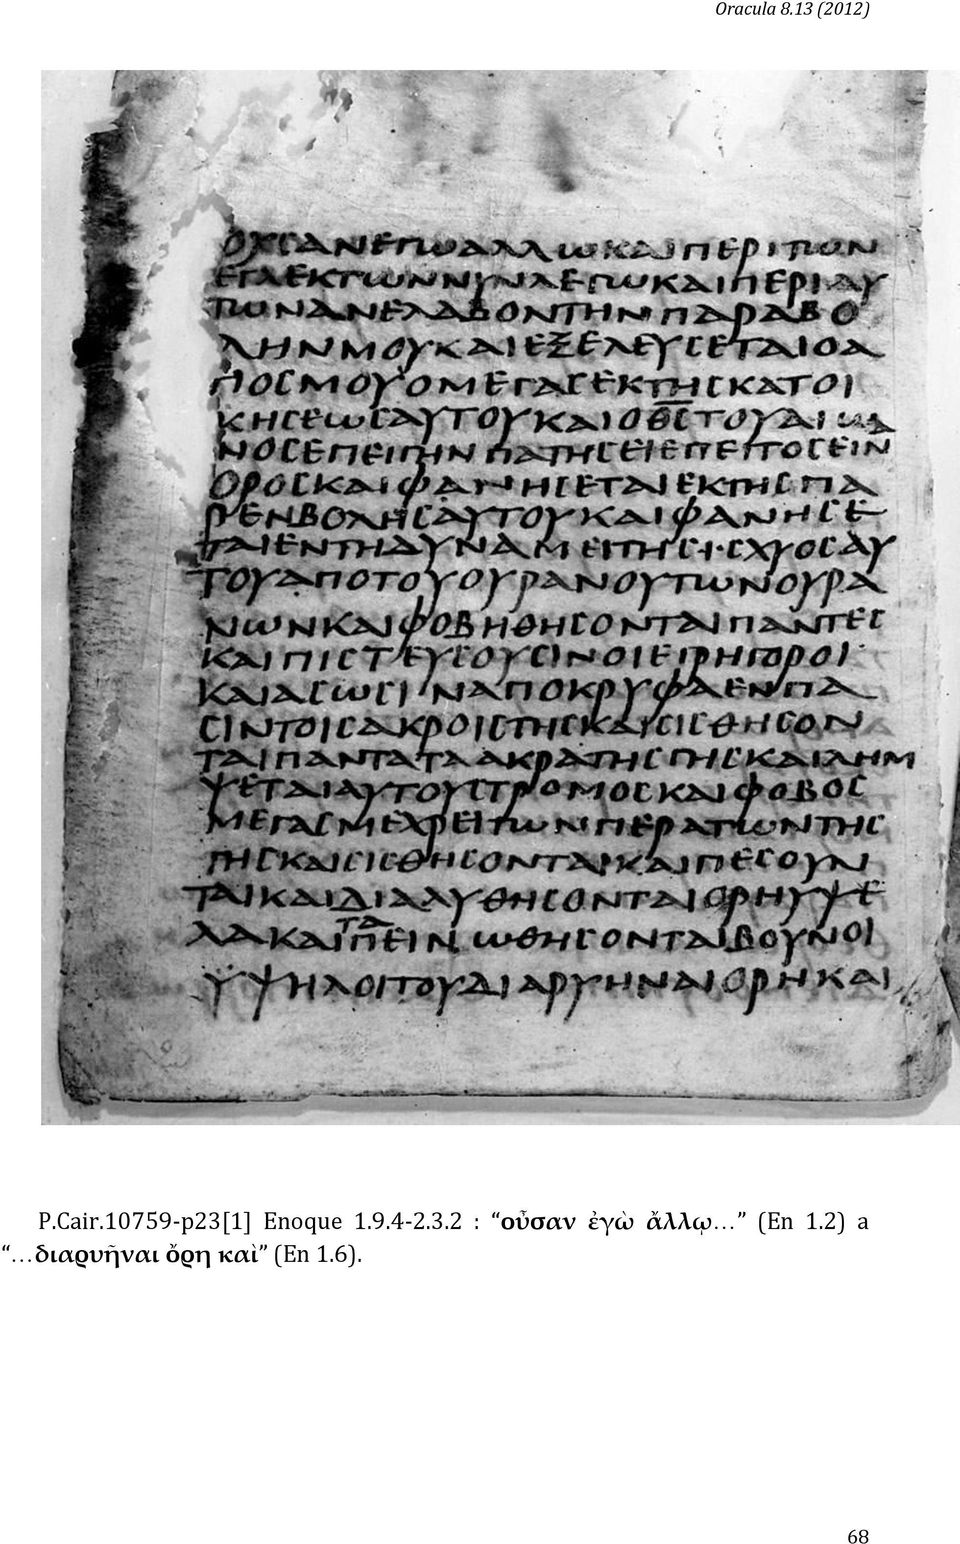 Oracula 8.13 (2012)
ΟΥϹΑΝΕΓΩΑΛΛΩΚΑΙΠΕΡΙΤΩΝ
ΕΓΛΕΚΤΩΝΝΥΝΛΕΓΩΚΑΙΠΕΡΙΑΥ
ΤΩΝΑΝΕΛΑΒΟΝΤΗΝΠΑΡΑΒΟ
ΛΗΝΜΟΥΚΑΙΕΞΕΛΕΥϹΕΤΑΙΟΑ
ΓΙΟϹΜΟΥΟΜΕΓΑϹΕΚΤΗϹΚΑΤΟΙ
ΚΗϹΕΩϹΑΥΤΟΥΚΑΙΟΘ̅Ϲ̅ΤΟΥΑΙΩ
ΝΟϹΕΠΕΙΓΗΝΠΑΤΗϹΕΙΕΠΕΙΤΟϹΕΙΝ
ΟΡΟϹΚΑΙΦΑΝΗϹΕΤΑΙΕΚΤΗϹΠΑ
ΡΕΝΒΟΛΗϹΑΥΤΟΥΚΑΙΦΑΝΗϹΕ
ΤΑΙΕΝΤΗΔΥΝΑΜΕΙΤΗϹΙϹΧΥΟϹΑΥ
ΤΟΥΑΠΟΤΟΥΟΥΡΑΝΟΥΤΩΝΟΥΡΑ
ΝΩΝΚΑΙΦΟΒΗΘΗϹΟΝΤΑΙΠΑΝΤΕϹ
ΚΑΙΠΙϹΤΕΥϹΟΥϹΙΝΟΙΕΓΡΗΓΟΡΟΙ
ΚΑΙΑϹΩϹΙΝΑΠΟΚΡΥΦΑΕΝΠΑ
ϹΙΝΤΟΙϹΑΚΡΟΙϹΤΗϹΚΑΙϹΙϹΘΗϹΟΝ
ΤΑΙΠΑΝΤΑΤΑΑΚΡΑΤΗϹΓΗϹΚΑΙΛΗΜ
ΨΕΤΑΙΑΥΤΟΥϹΤΡΟΜΟϹΚΑΙΦΟΒΟϹ
ΜΕΓΑϹΜΕΧΡΕΙΤΩΝΠΕΡΑΤΩΝΤΗϹ
ΓΗϹΚΑΙϹΙϹΘΗϹΟΝΤΑΙΚΑΙΠΕϹΟΥΝ
ΤΑΙΚΑΙΔΙΑΛΥΘΗϹΟΝΤΑΙΟΡΗΥΨΕ
ΛΑΚΑΙΤΑΠΕΙΝΩΘΗϹΟΝΤΑΙΒΟΥΝΟΙ
ΥΨΗΛΟΙΤΟΥΔΙΑΡΥΗΝΑΙΟΡΗΚΑΙ
P.Cair.10759-p23[1] Enoque 1.9.4-2.3.2 : “οὖσαν ἐγὼ ἄλλῳ…” (En 1.2) a
“…διαρυῆναι ὄρη καὶ” (En 1.6).
68